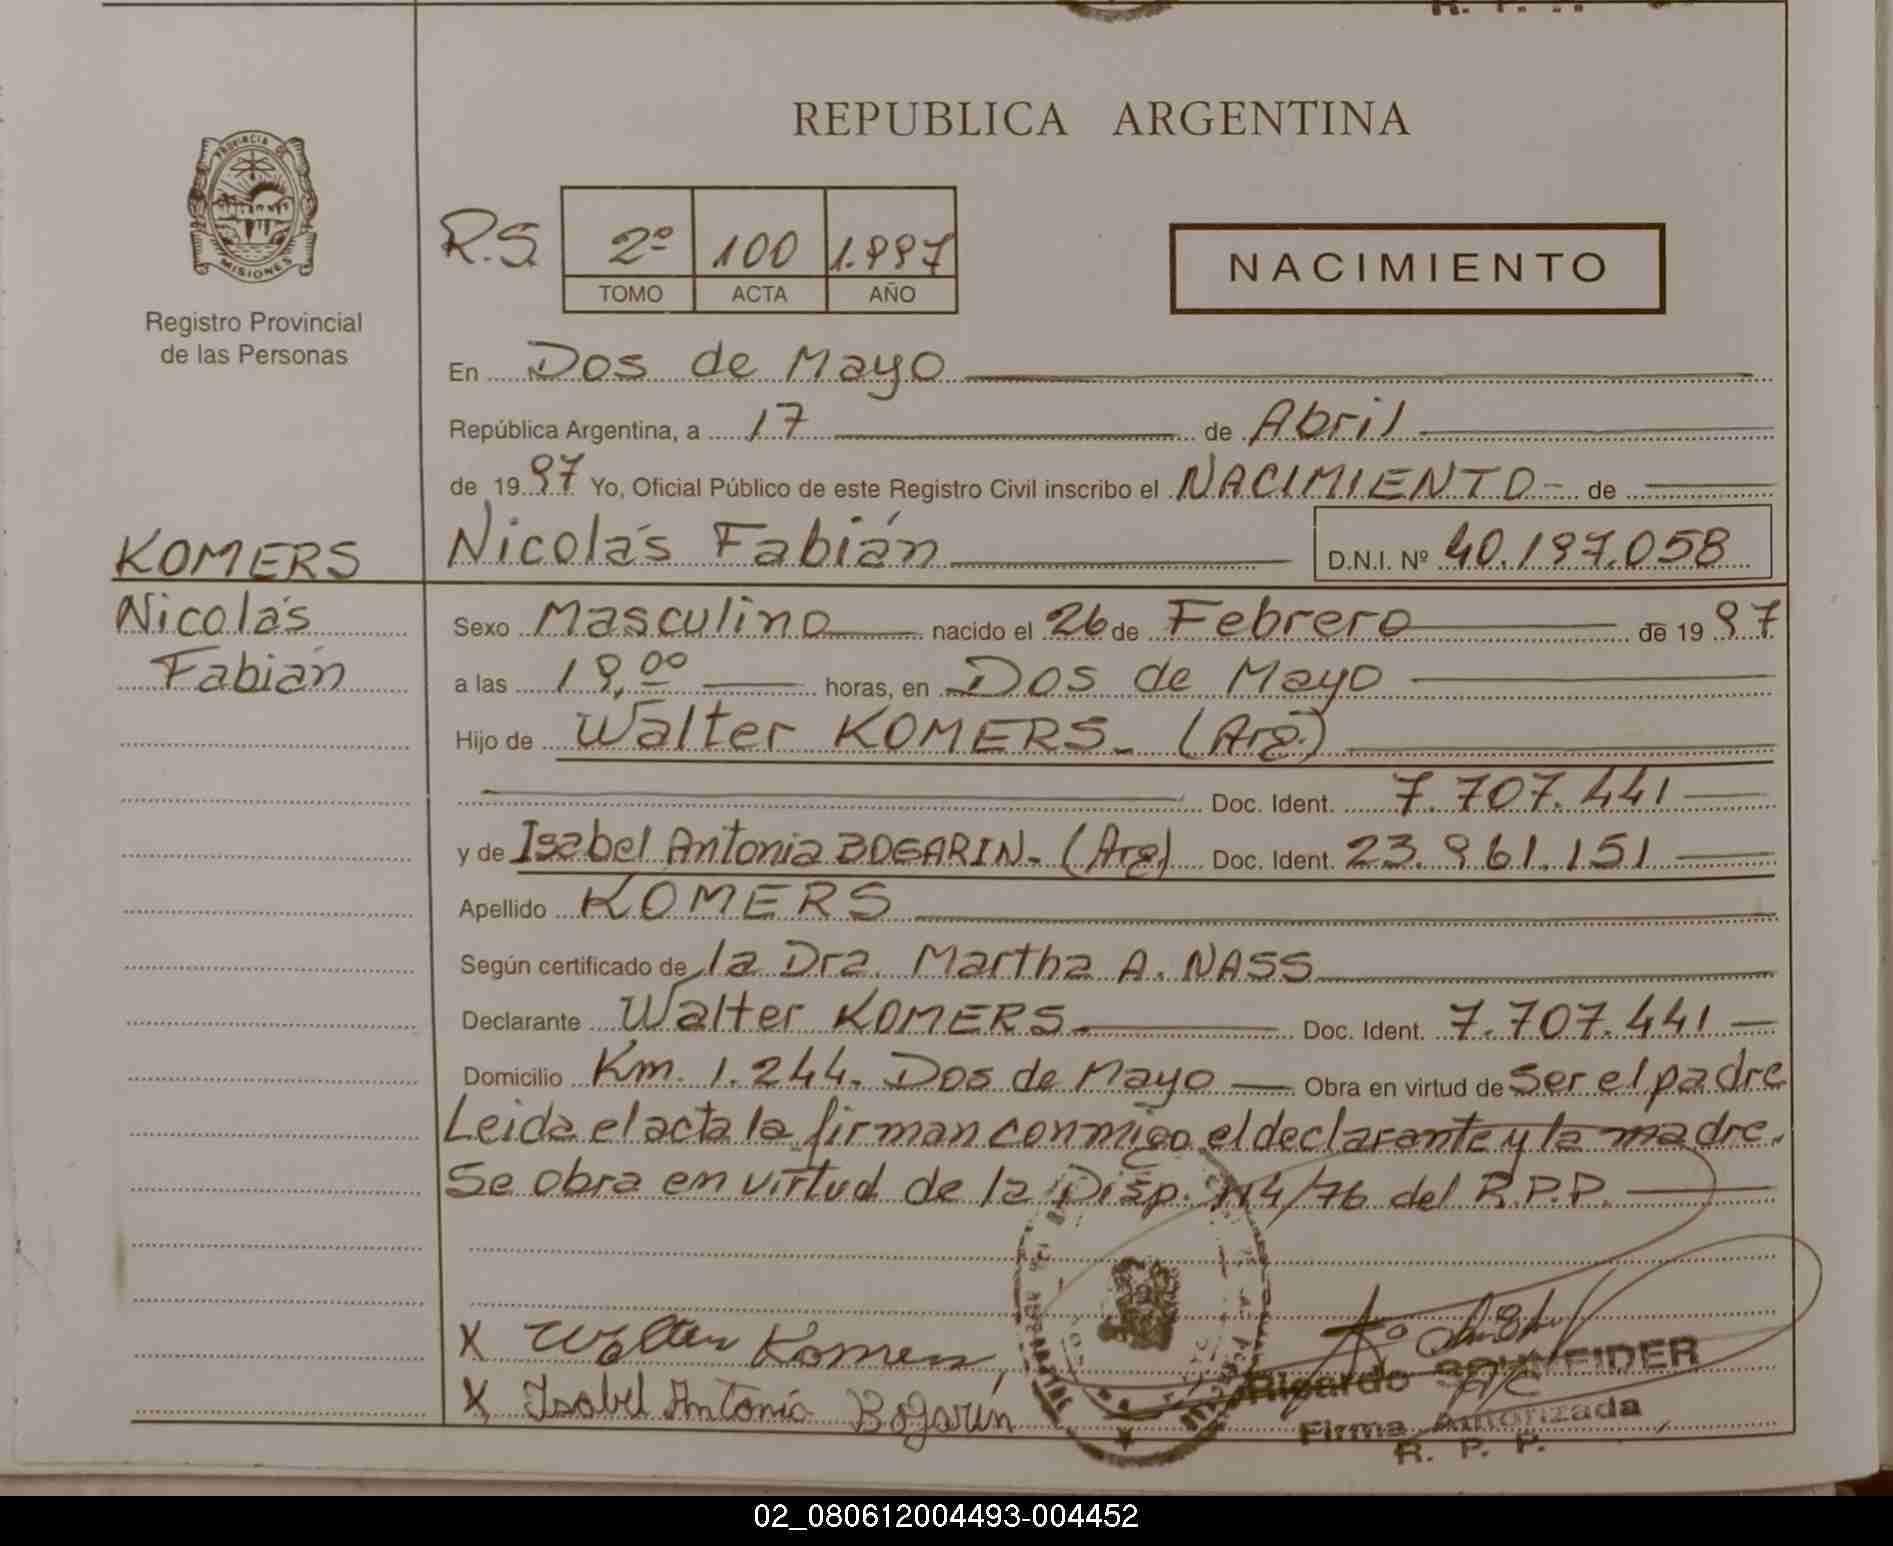 REPUBLICA ARGENTINA
PROVINCIA DE
MISIONES
Registro Provincial
de las Personas
R.S. 2º 100 1.997
TOMO ACTA AÑO
NACIMIENTO
En Dos de Mayo
República Argentina, a 17 de Abril
de 1997 Yo, Oficial Público de este Registro Civil inscribo el NACIMIENTO- de
KOMERS
Nicolás
Fabián
Nicolás Fabián D.N.I. Nº 40.197.058
Sexo Masculino nacido el 26 de Febrero de 1997
a las 19,00 horas, en Dos de Mayo
Hijo de Walter KOMERS.- (Arg.)
Doc. Ident. 7.707.441
y de Isabel Antonia BOGARIN.- (Arg.) Doc. Ident. 23.961.151
Apellido KOMERS
Según certificado de la Dra. Martha A. NASS
Declarante Walter KOMERS.- Doc. Ident. 7.707.441
Domicilio Km. 1.244. Dos de Mayo Obra en virtud de ser el padre
Leida el acta la firman conmigo el declarante y la madre.
Se obra en virtud de la Disp. 114/76 del R.P.P.
X Walter Komers
X Isabel Antonia Bogarín
Ricardo SCHNEIDER
A/C
Firma Autorizada
R. P. P.
02_080612004493-004452